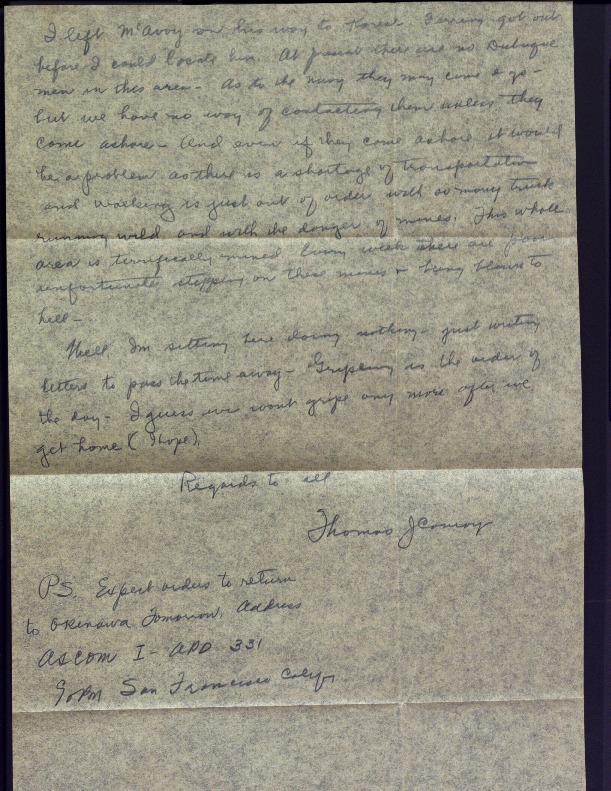 I left McAvoy on his way to Korea. Ferring got out
before I could locate him. At present there are no Dubuque
men in this area - As to the navy they may come & go -
but we have no way of contacting them unless they
come ashore - And even if they come ashore it would
be a problem as there is a shortage of transportation
and walking is just out of order with so many trucks
running wild and with the danger of mines. This whole
area is terrifically mined. Every week there are poor
unfortunates stepping on these mines & being blown to
hell -
Well, Im sitting here doing nothing - just writing
letters to pass the time away - Gripeing is the order of
the day - I guess we wont gripe any more after we
get home (I hope).
Regards to all
Thomas J Conroy
PS. Expect orders to return
to Okinawa Tomorrow, Address
ASCOM I - APO 331
%PM San Francisco Calif.